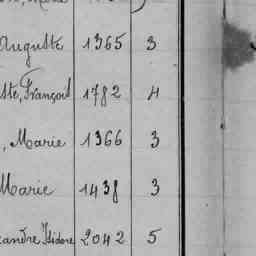 Auguste 1365 3
ste, François 1782 4
, Marie 1366 3
Marie 1438 3
xandre Isidore 2042 5